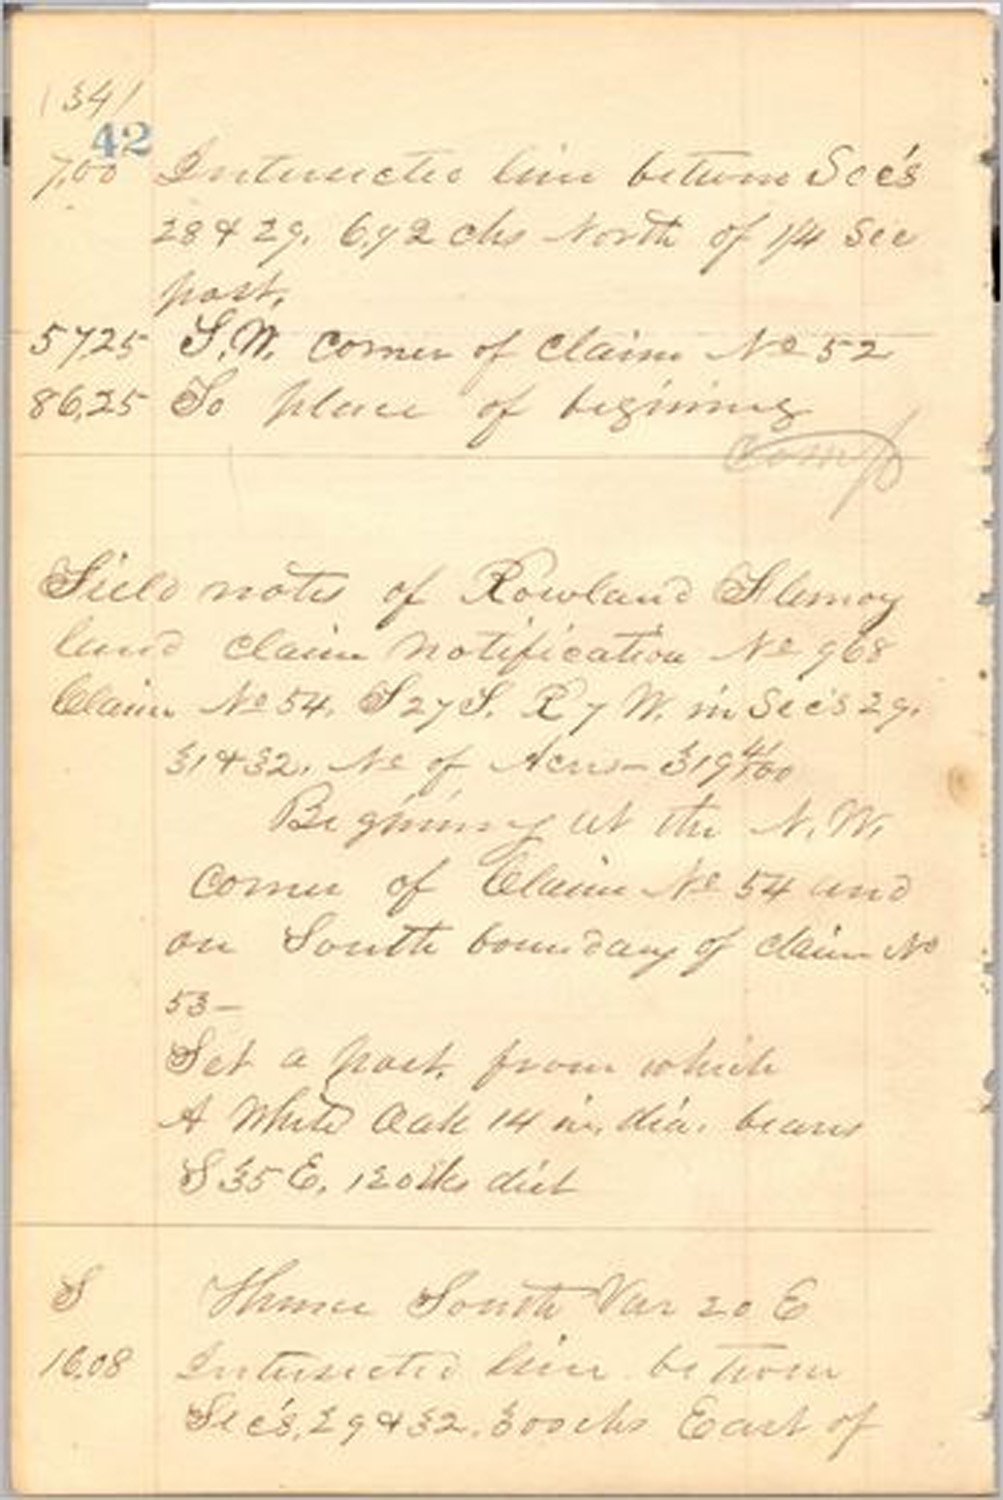 (34)
42
7,00 Intersected line between Sec's
28 & 29. 6,92 chs North of 1/4 Sec
post.
57,25 S.W. corner of claim No 52
86,25 To place of begining
Comp
Field notes of Rowland Flemoy
land claim notification No 968
Claim No 54. T 27 S. R 7 W. in Sec's 29.
31 & 32. No of Acres - 319 41/100
Begining at the N.W.
corner of Claim No 54 and
on South boundary of claim No
53-
Set a post. from which
A White Oak 14 in. dia. bears
S 35 E. 120 lks dist
S Thence South Var 20 E
16,08 Intersected line between
Sec's, 29 & 32. 300 chs East of